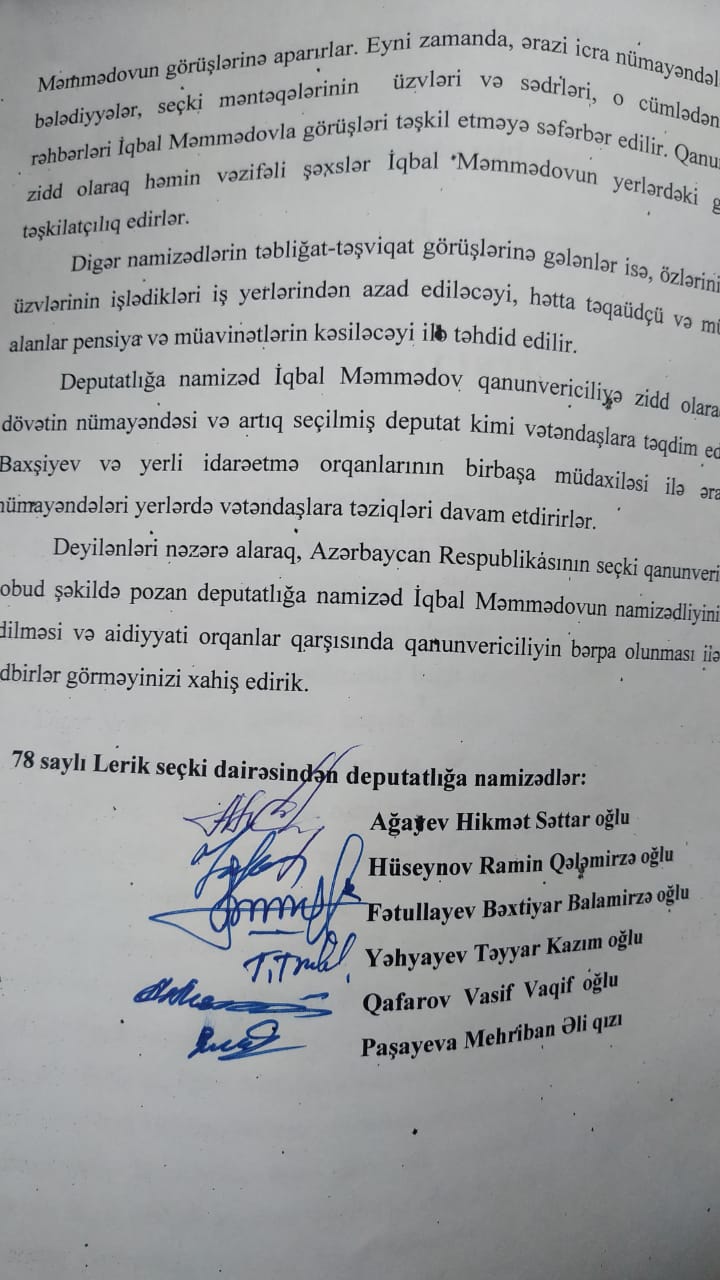 Məmmədovun görüşlərinə aparırlar. Eyni zamanda, ərazi icra nümayəndəl
bələdiyyələr, seçki məntəqələrinin üzvləri və sədrləri, o cümlədən
rəhbərləri İqbal Məmmədovla görüşləri təşkil etməyə səfərbər edilir. Qanu
zidd olaraq həmin vəzifəli şəxslər İqbal Məmmədovun yerlərdəki g
təşkilatçılıq edirlər.
Digər namizədlərin təbliğat-təşviqat görüşlərinə gələnlər isə, özlərini
üzvlərinin işlədikləri iş yerlərindən azad ediləcəyi, hətta təqaüdçü və mü
alanlar pensiya və müavinətlərin kəsiləcəyi ilə təhdid edilir.
Deputatlığa namizəd İqbal Məmmədov qanunvericiliyə zidd olara
dövətin nümayəndəsi və artıq seçilmiş deputat kimi vətəndaşlara təqdim ed
Baxşiyev və yerli idarəetmə orqanlarının birbaşa müdaxiləsi ilə əra
nümayəndələri yerlərdə vətəndaşlara təziqləri davam etdirirlər.
Deyilənləri nəzərə alaraq, Azərbaycan Respublikasının seçki qanunveri
obud şəkildə pozan deputatlığa namizəd İqbal Məmmədovun namizədliyini
dilməsi və aidiyyati orqanlar qarşısında qanunvericiliyin bərpa olunması ilə
dbirlər görməyinizi xahiş edirik.
78 saylı Lerik seçki dairəsindən deputatlığa namizədlər:
Ağayev Hikmət Səttar oğlu
Hüseynov Ramin Qələmirzə oğlu
Fətullayev Bəxtiyar Balamirzə oğlu
Yəhyayev Təyyar Kazım oğlu
Qafarov Vasif Vaqif oğlu
Paşayeva Mehriban Əli qızı